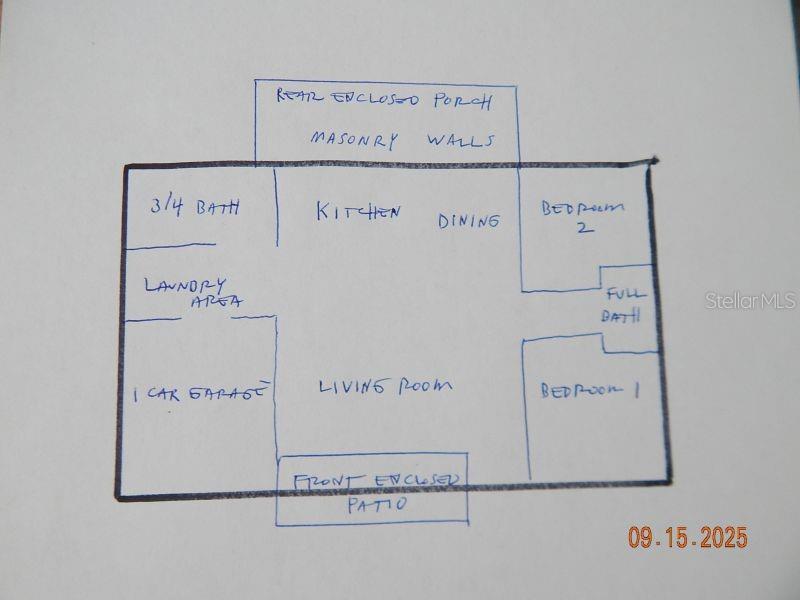 REAR ENCLOSED PORCH
MASONRY WALLS
3/4 BATH
KITCHEN
DINING
BEDROOM
2
LAUNDRY
AREA
FULL
BATH
StellarMLS
1 CAR GARAGE
LIVING ROOM
BEDROOM 1
FRONT ENCLOSED
PATIO
09.15.2025